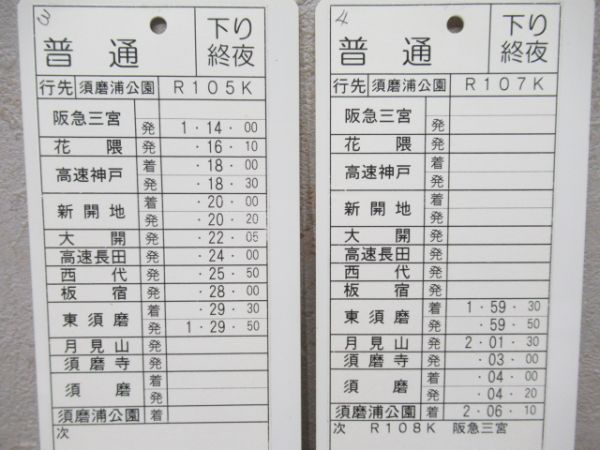 3
普通 下り終夜
行先 須磨浦公園 R105K
阪急三宮 発 1・14・00
花隈 発 ・16・10
高速神戸 着 ・18・00
発 ・18・30
新開地 着 ・20・00
発 ・20・20
大開 発 ・22・05
高速長田 発 ・24・00
西代 発 ・25・50
板宿 発 ・28・00
東須磨 着 ・29・30
発 1・29・50
月見山 発
須磨寺 発
須磨 着
発
須磨浦公園 着
次
4
普通 下り終夜
行先 須磨浦公園 R107K
阪急三宮 発
花隈 発
高速神戸 着
発
新開地 着
発
大開 発
高速長田 発
西代 発
板宿 発
東須磨 着 1・59・30
発 ・59・50
月見山 発 2・01・30
須磨寺 発 ・03・00
須磨 着 ・04・00
発 ・04・20
須磨浦公園 着 2・06・10
次 R108K 阪急三宮